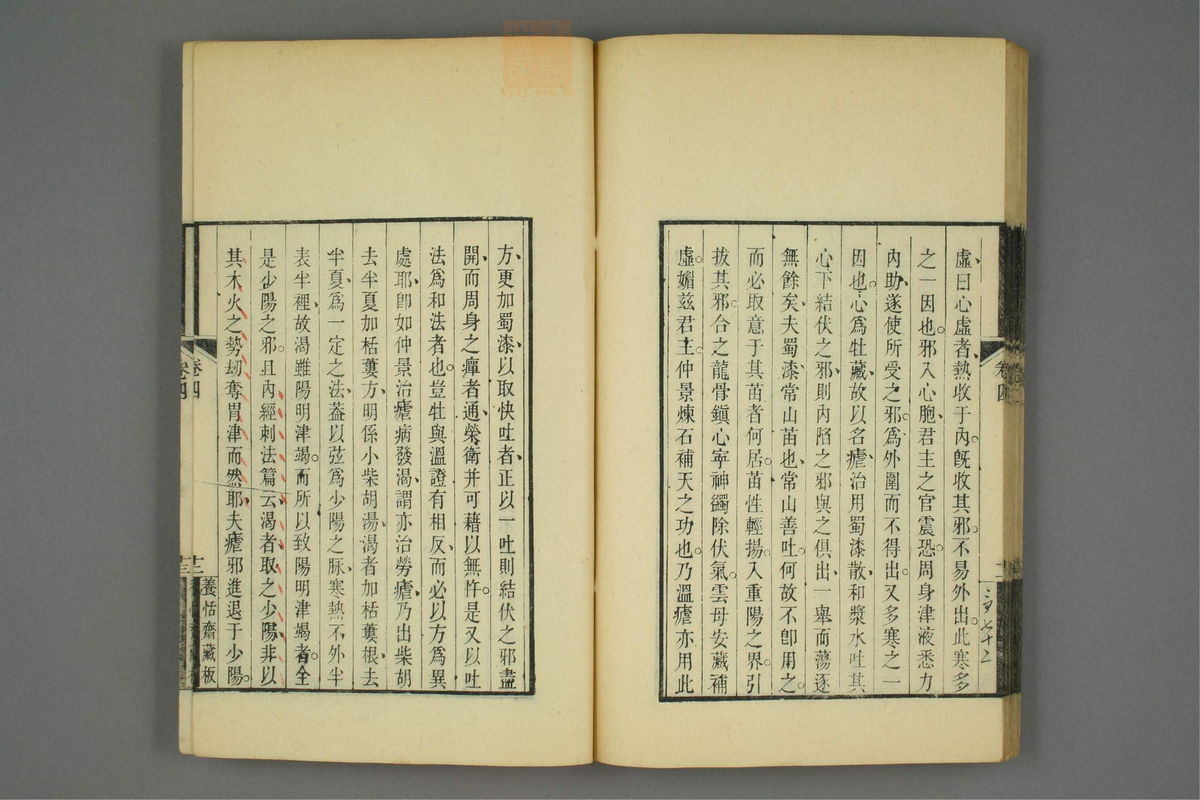 虛曰心虛者熱收于內旣收其邪不易外出此寒多
之一因也邪入心胞君主之官震恐周身津液悉力
內助遂使所受之邪爲外圍而不得出又多寒之一
因也心爲牡藏故以名瘧治用蜀漆散和漿水吐其
心下結伏之邪則內陷之邪與之俱出一舉而蕩逐
無餘矣夫蜀漆常山苗也常山善吐何故不卽用之
而必取意于其苗者何居苗性輕揚入重陽之界引
拔其邪合之龍骨鎭心寧神蠲除伏氣雲母安藏補
虛媚茲君主仲景煉石補天之功也乃溫瘧亦用此
卷四
方更加蜀漆以取快吐者正以一吐則結伏之邪盡
開而周身之痺者通榮衛并可藉以無忤是又以吐
法爲和法者也豈牡與溫證有相反而必以方爲異
處耶卽如仲景治瘧病發渴謂亦治勞瘧乃出柴胡
去半夏加栝蔞方明係小柴胡湯渴者加栝蔞根去
半夏爲一定之法葢以弦爲少陽之脉寒熱不外半
表半裡故渴雖陽明津竭而所以致陽明津竭者全
是少陽之邪且內經刺法篇云渴者取之少陽非以
其木火之勢刼奪胃津而然耶夫瘧邪進退于少陽
卷四
十二
養恬齋藏板
卷四
十三